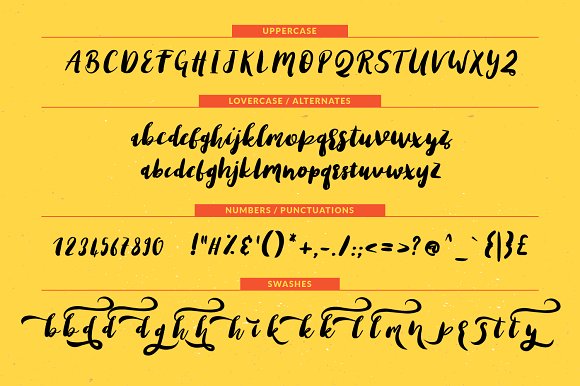 UPPERCASE
ABCDEFGHIJKLMOPQRSTUVWXYZ
LOVERCASE / ALTERNATES
abcdefghijklmopqrstuvwxyz
abcdefghijklmnopqrstuvwxyz
NUMBERS / PUNCTUATIONS
1234567890 !"H%&'()*+,-./:;<=>?@^_`{|}£
SWASHES